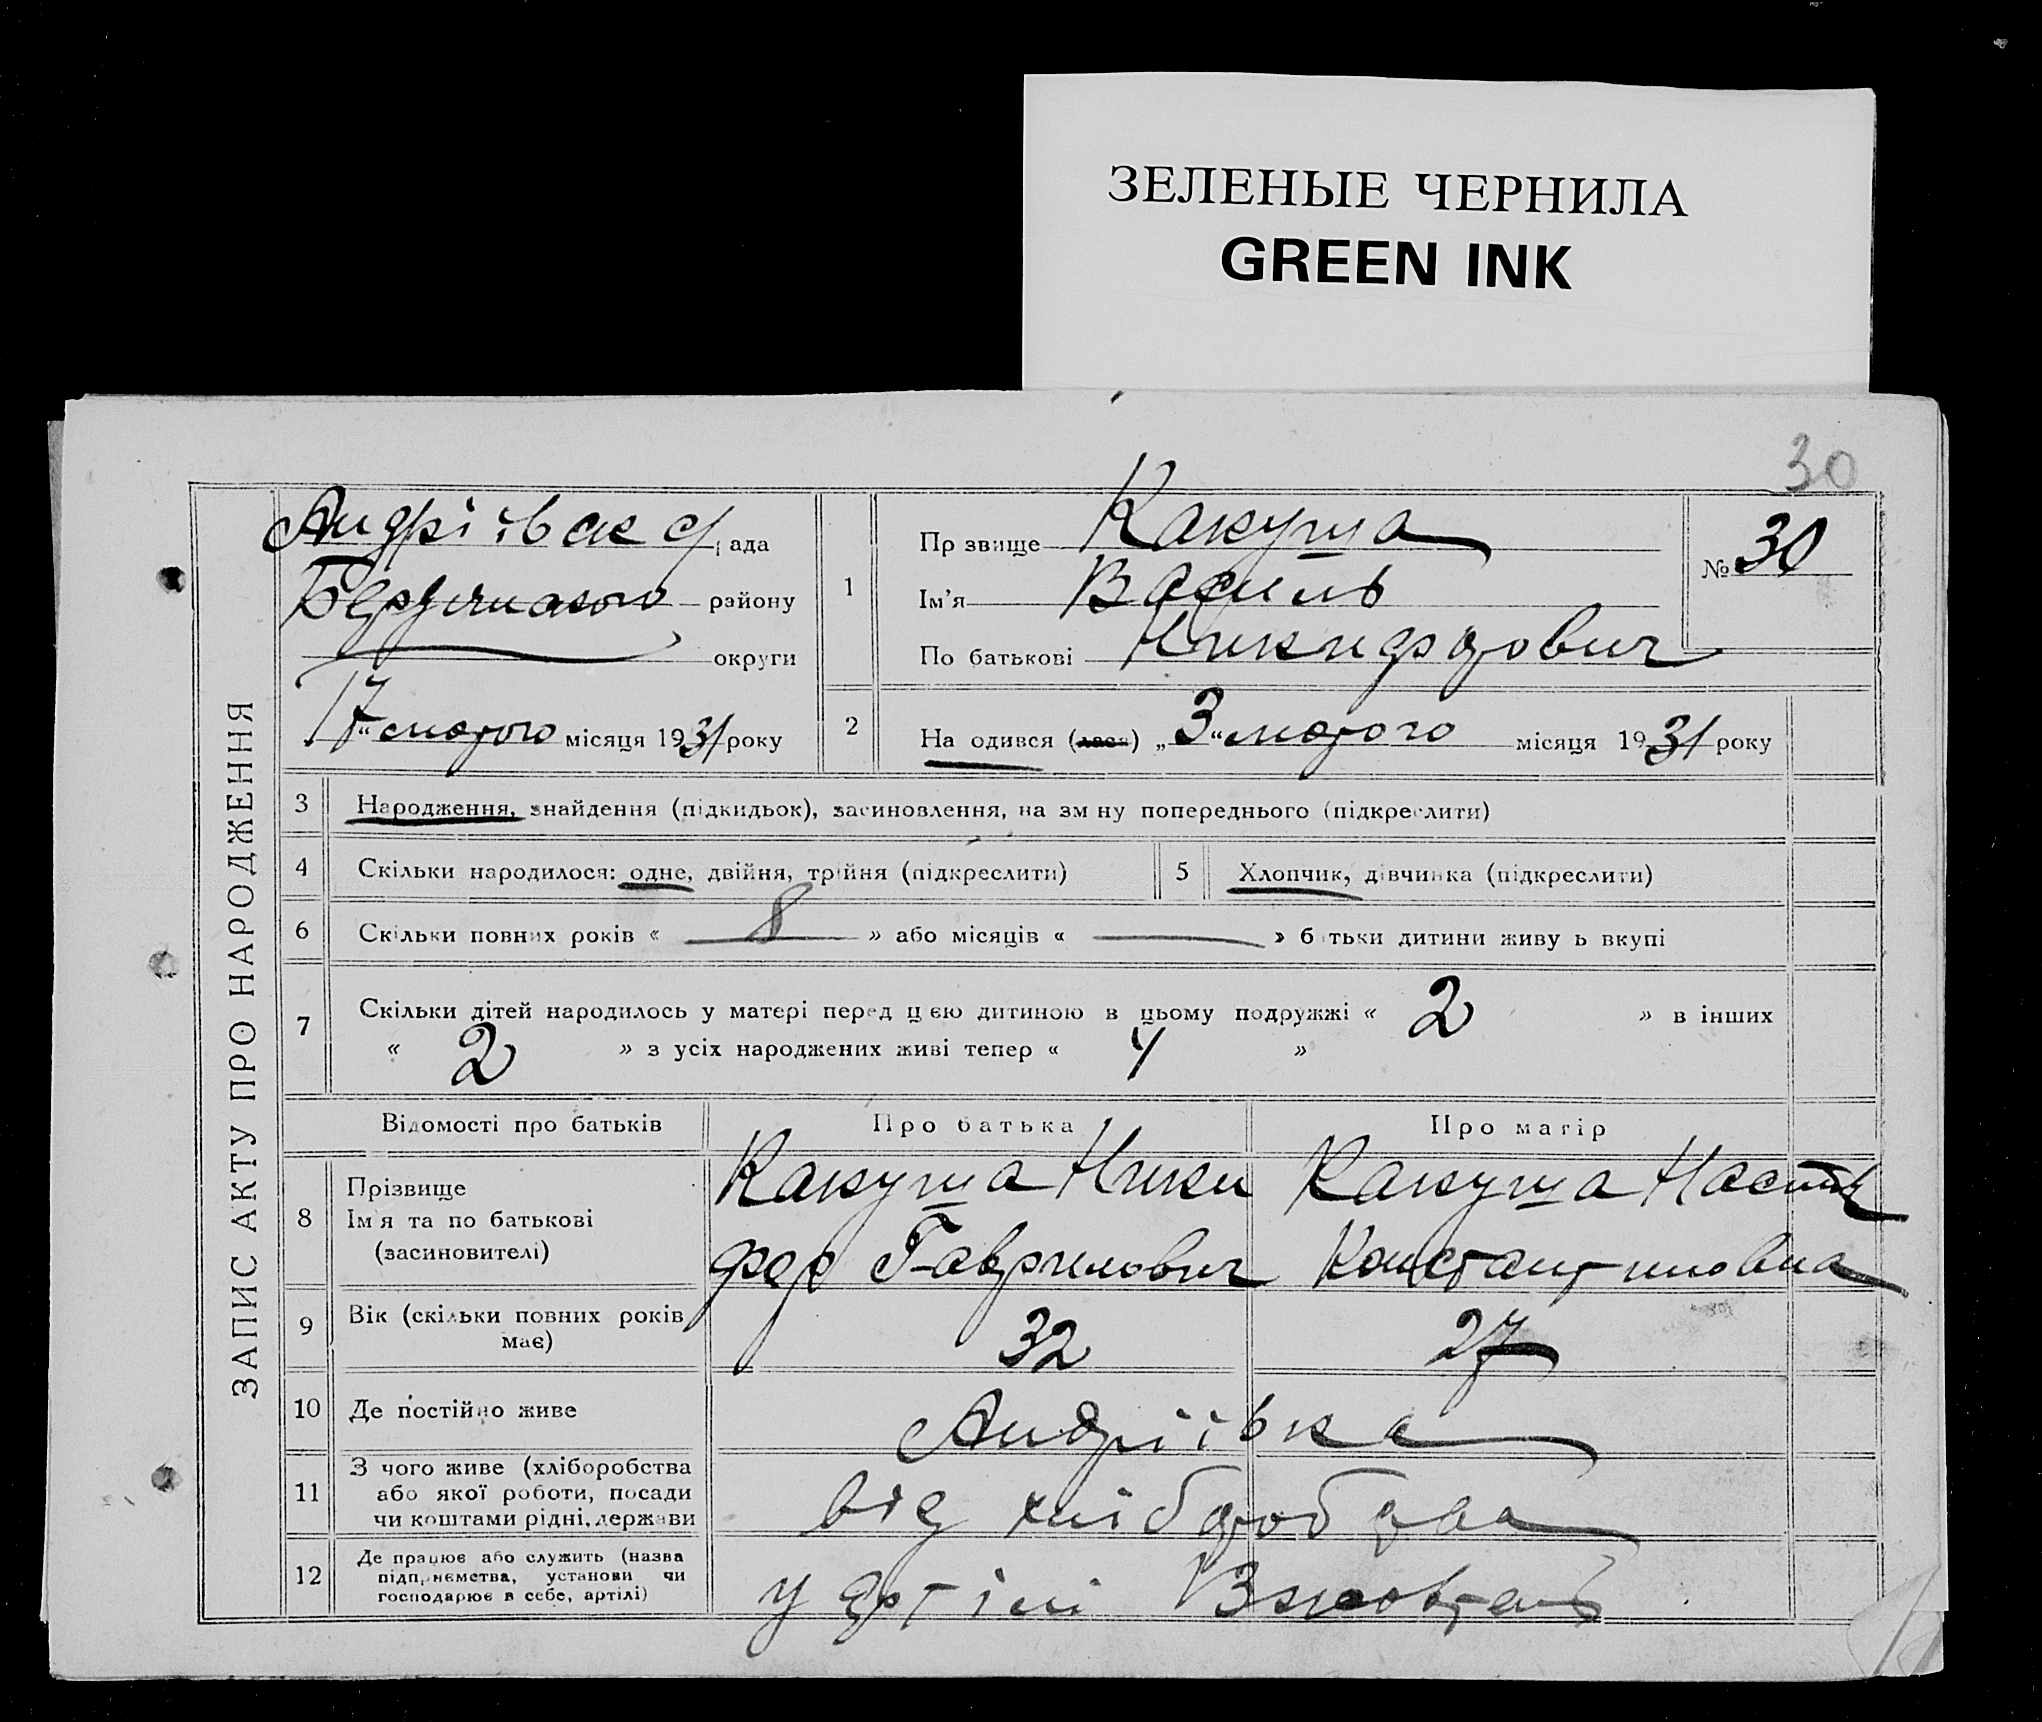 ЗЕЛЕНЫЕ ЧЕРНИЛА
GREEN INK
30
Андріївск рада
Бердянського району
округи
17 " лютого місяця 1931 року
1
Пр звище Какуша
Ім'я Василь
По батькові Никифорович
№ 30
2
На одився (лася) „ 3 " лютого місяця 1931 року
ЗАПИС АКТУ ПРО НАРОДЖЕННЯ
3 Народження, знайдення (підкидьок), засиновлення, на зм ну попереднього (підкреслити)
4 Скільки народилося: одне, двійня, трійня (підкреслити)
5 Хлопчик, дівчинка (підкреслити)
6 Скільки повних років « 8 » або місяців « — » б тьки дитини живу ь вкупі
7 Скільки дітей народилось у матері перед цією дитиною в цьому подружжі « 2 » в інших
« 2 » з усіх народжених живі тепер « 4 »
Відомості про батьків Про батька Про матір
8 Прізвище
Ім'я та по батькові
(засиновителі)
Какуша Ники
фор Гаврилович
Какуша Настя
Константиновна
9 Вік (скільки повних років
має)
32 27
10 Де постійно живе Андріївка
11 З чого живе (хліборобства
або якої роботи, посади
чи коштами рідні, держави
від хліборобства
12 Де працює або служить (назва
підприємства, установи чи
господарює в себе, артілі)
у артілі